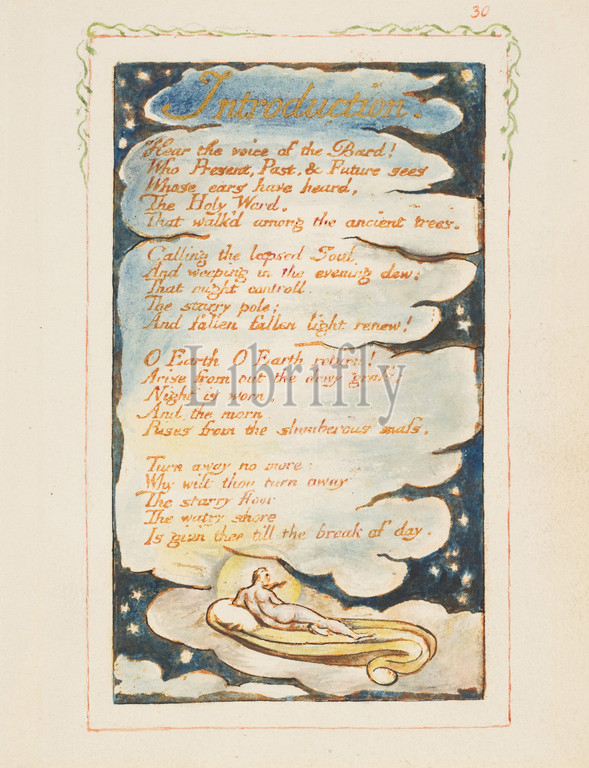 30
Introduction.
Hear the voice of the Bard!
Who Present, Past, & Future sees
Whose ears have heard,
The Holy Word,
That walk'd among the ancient trees.
Calling the lapsed Soul
And weeping in the evening dew:
That might controll.
The starry pole;
And fallen fallen light renew!
O Earth O Earth return!
Arise from out the dewy grass;
Night is worn,
And the morn
Rises from the slumberous mass.
Turn away no more:
Why wilt thou turn away
The starry floor
The watry shore
Is giv'n thee till the break of day.
Librifly